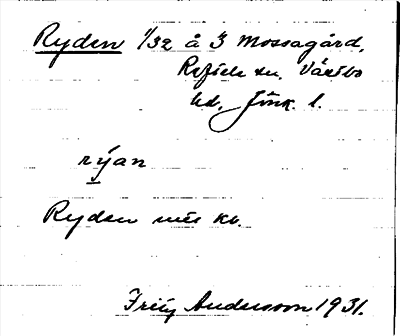 Ryden 1/32 å 3 Mossagård,
Reftele sn, Västbo
hd, Jönk. l.
rýan
Ryden mtl kb.
Fritz Andersson 1931.